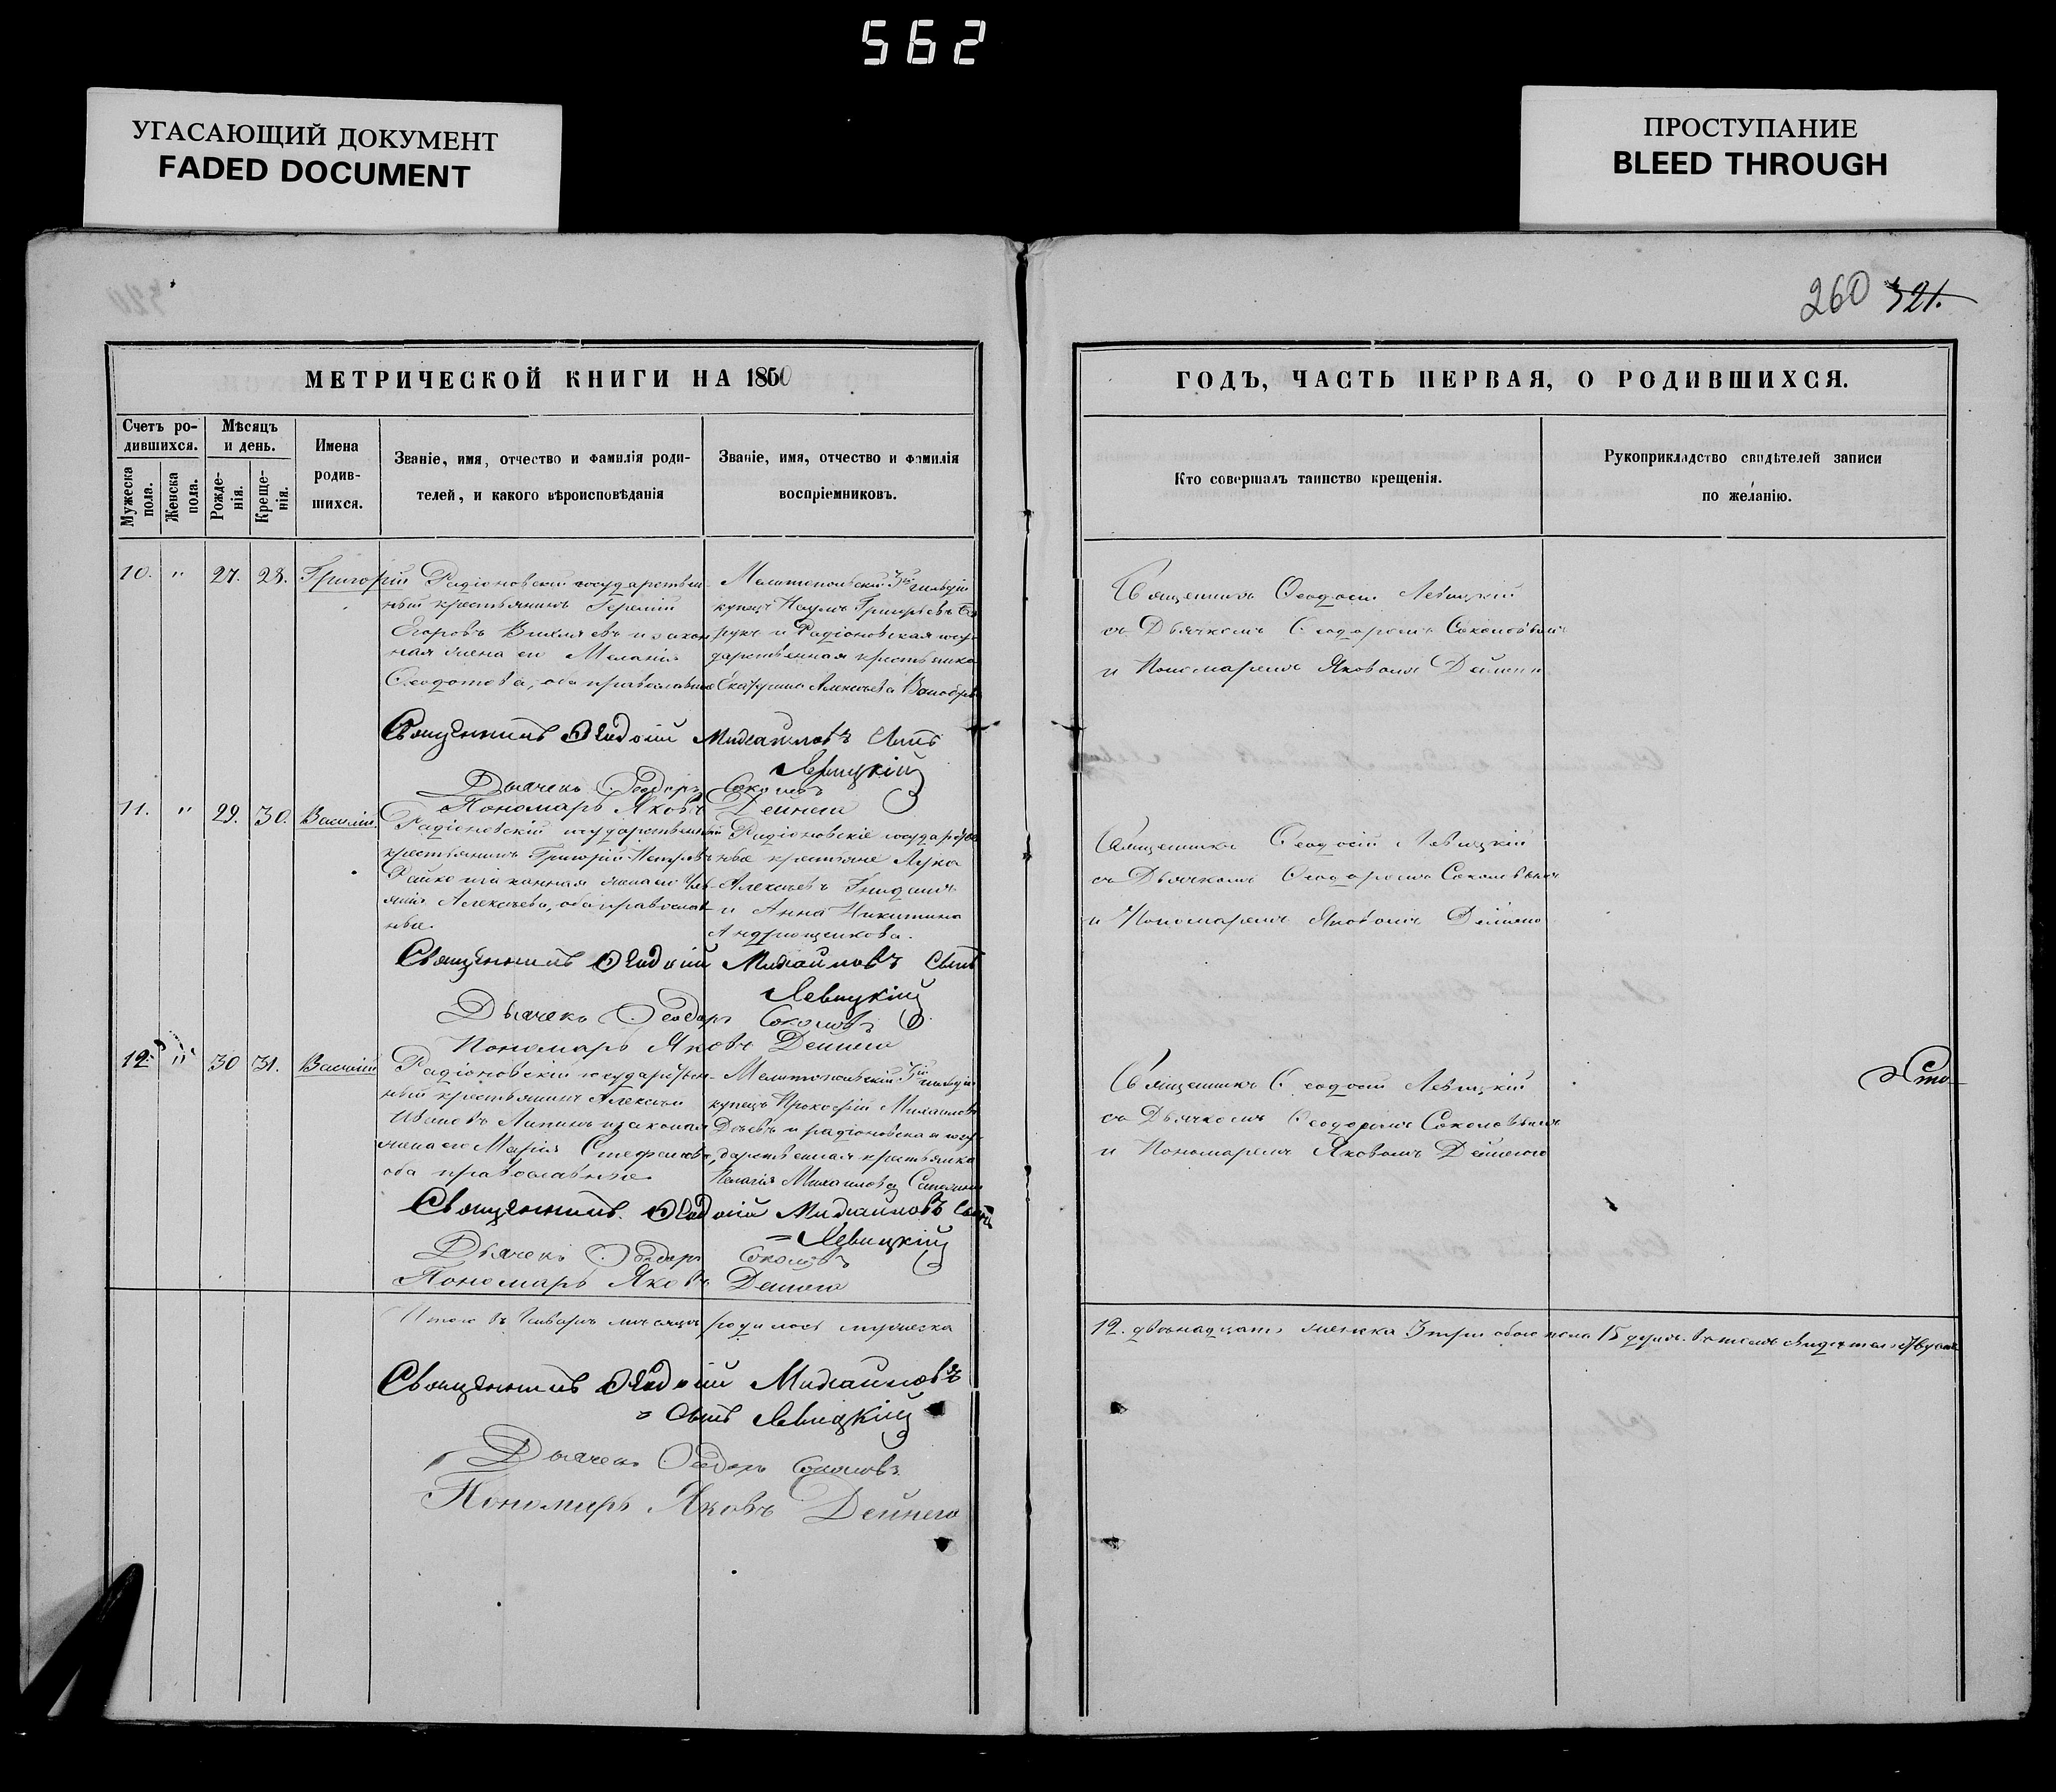 562
УГАСАЮЩИЙ ДОКУМЕНТ
FADED DOCUMENT
ПРОСТУПАНИЕ
BLEED THROUGH
260 321.
МЕТРИЧЕСКОЙ КНИГИ НА 1850
ГОДЪ, ЧАСТЬ ПЕРВАЯ, О РОДИВШИХСЯ.
Счетъ ро-
дившихся.
Мужеска
пола.
Женска
пола.
Мѣсяцъ
и день.
Рожде-
нія.
Креще-
нія.
Имена
родив-
шихся.
Званіе, имя, отчество и фамилія роди-
телей, и какого вѣроисповѣданія
Званіе, имя, отчество и фамилія
воспріемниковъ.
Кто совершалъ таинство крещенія.
Рукоприкладство свидѣтелей записи
по желанію.
10. " 27. 28. Григорій
Радіоновскій государствен-
ный крестьянинъ
Егоровъ и закон
ная жена его Меланія
Феодотова, оба православные
Мелитопольскій 3й гильдіи
купецъ Наумъ Григорьевъ
и Радіоновская госу-
дарственная крестьянка
Екатерина Алексѣева
Священникъ Феодосій Левицкій
съ Дьячкомъ Феодоромъ Соколовымъ
и Пономаремъ Яковомъ Дейнего
Священникъ Феодосій Михайловъ Сынъ
Левицкій
Дьячекъ Феодоръ Соколовъ
Пономарь Яковъ Дейнега
11. " 29. 30. Василій.
Радіоновскій государственный
крестьянинъ Григорій Петровъ
законная жена его
Алексѣева, оба православ
ные.
Радіоновскіе государствен
ные крестьяне Лука
Алексѣевъ
и Анна Никитина
Андрющенкова.
Священникъ Феодосій Левицкій
съ Дьячкомъ Феодоромъ Соколовымъ
и Пономаремъ Яковомъ Дейнего
Священникъ Феодосій Михайловъ Сынъ
Левицкій
Дьячекъ Феодоръ Соколовъ
Пономарь Яковъ Дейнега
12. " 30 31. Василій
Радіоновскій государствен-
ный крестьянинъ Алексѣй
Ивановъ Липинъ и законая
жена его Марія Стефанова,
оба православные
Мелитопольскій 3й гильдіи
купецъ Прокофій Михайловъ
и радіоновская госу-
дарственная крестьянка
Пелагія Михайлова
Священникъ Феодосій Левицкій
съ Дьячкомъ Феодоромъ Соколовымъ
и Пономаремъ Яковомъ Дейнегою
Священникъ Феодосій Михайловъ Сынъ
Левицкій
Дьячекъ Феодоръ Соколовъ
Пономарь Яковъ Дейнега
Итого въ Генварѣ мѣсяцѣ родилось мужеска
12. двѣнадцать женска 3 три обоего пола 15 душъ. въ томъ свидѣтельствуемъ
Священникъ Феодосій Михайловъ
Сынъ Левицкій
Дьячекъ Феодоръ Соколовъ
Пономарь Яковъ Дейнега